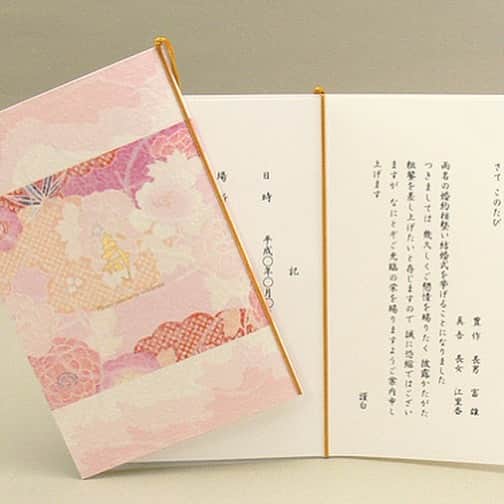 さて このたび
豊作 長男 富雄
真吾 長女 江里香
両名の婚約相整い結婚式を挙げることになりました
つきましては 幾久しくご懇情を賜りたく 披露かたがた
粗餐を差し上げたいと存じますので 誠に恐縮ではござい
ますが なにとぞご光臨の栄を賜りますようご案内申し
上げます
謹白
記
日時 平成〇年〇月〇
場所